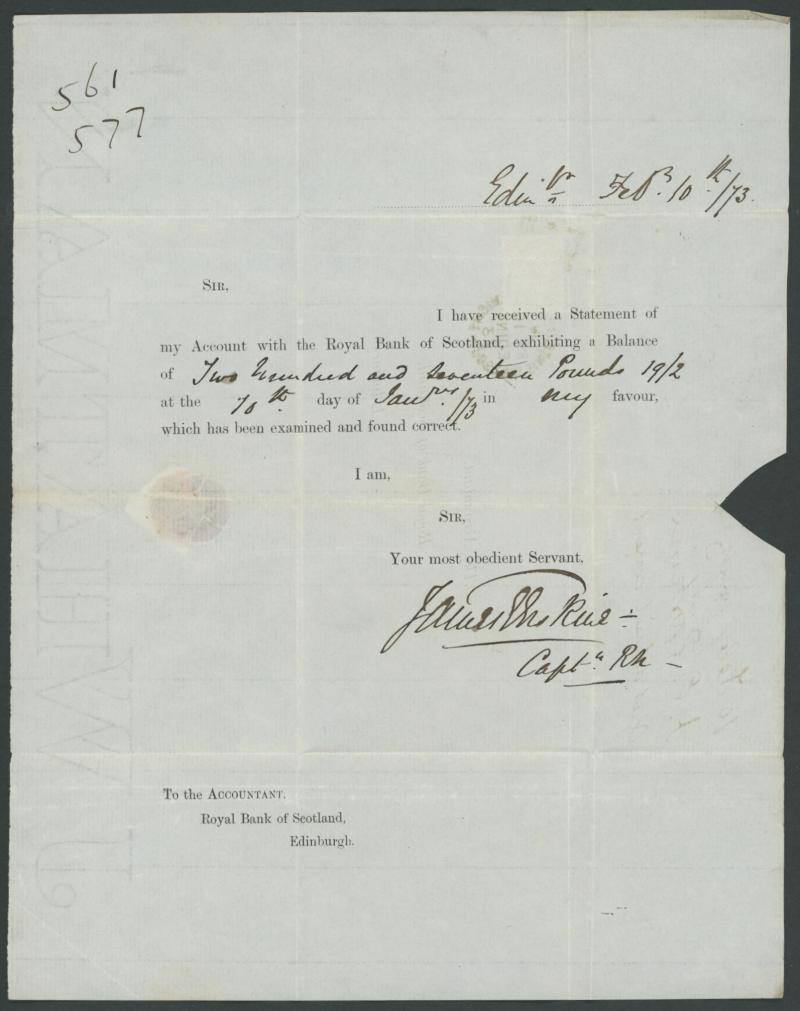 561
577
Edinbr Feby. 10th/73.
SIR,
I have received a Statement of
my Account with the Royal Bank of Scotland, exhibiting a Balance
of Two Hundred and Seventeen Pounds 19/2
at the 10th day of Janry/73 in my favour,
which has been examined and found correct.
I am,
SIR,
Your most obedient Servant,
James Erskine
Captn. RN
To the ACCOUNTANT.
Royal Bank of Scotland,
Edinburgh.